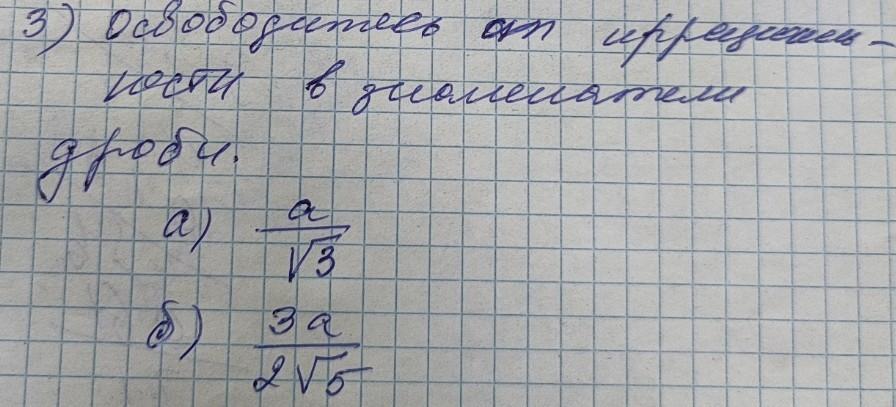 3) Освободитесь от иррациональ-
ности в знаменатели
дроби.
а) a/√3
б) 3a/2√5